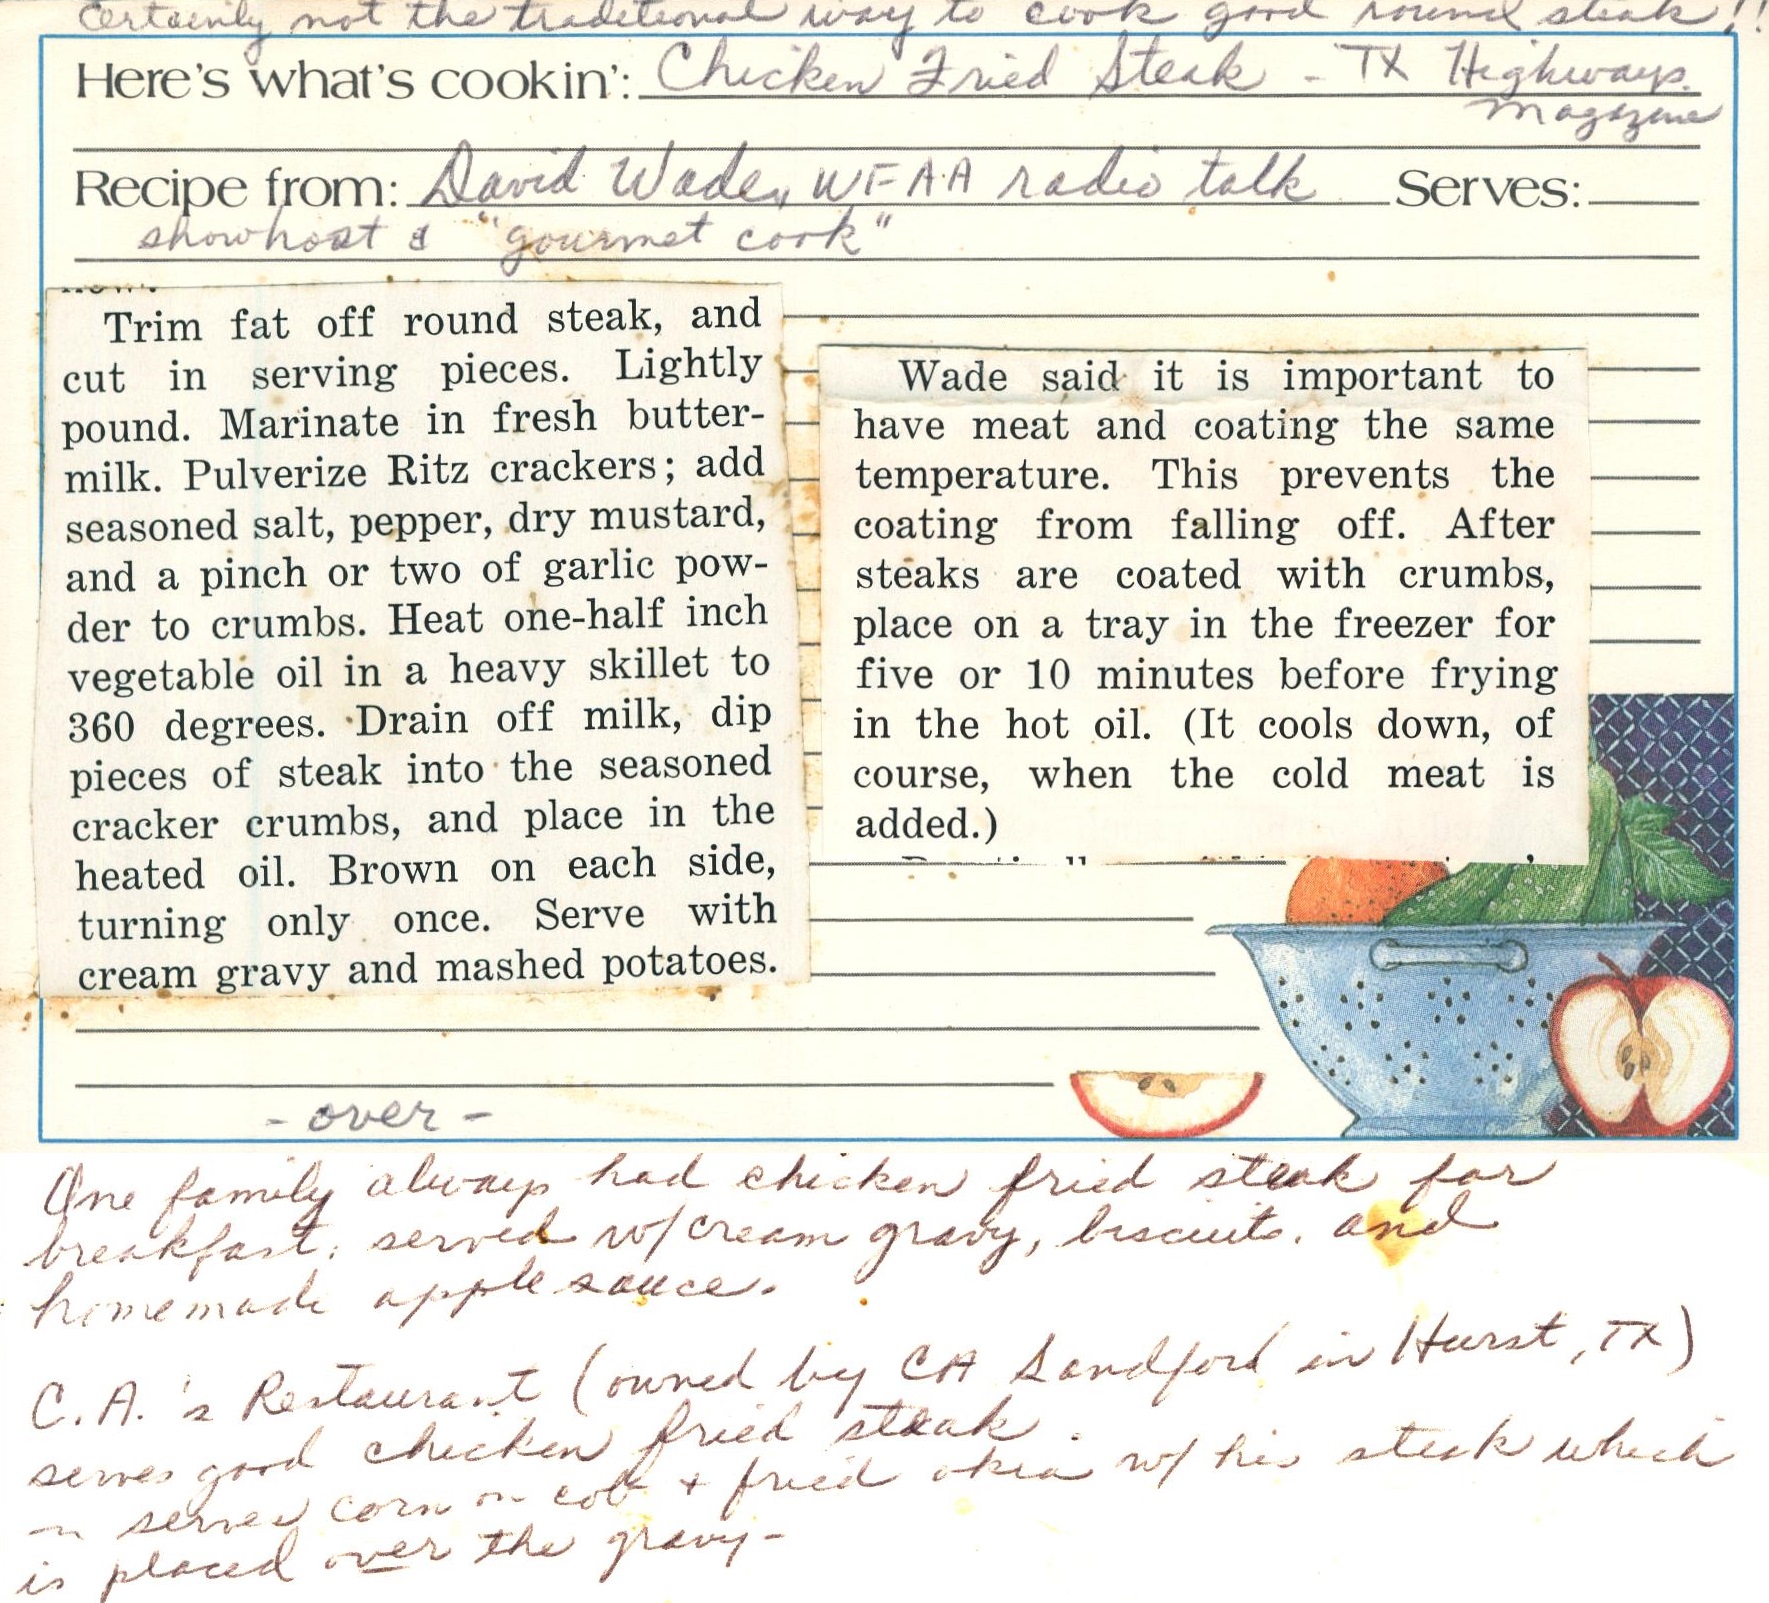 Certainly not the traditional way to cook good round steak!!
Here's what's cookin': Chicken Fried Steak - TX Highways
Magazine
Recipe from: David Wade, WFAA radio talk Serves:
showhost & "gourmet cook"
Trim fat off round steak, and
cut in serving pieces. Lightly
pound. Marinate in fresh butter-
milk. Pulverize Ritz crackers; add
seasoned salt, pepper, dry mustard,
and a pinch or two of garlic pow-
der to crumbs. Heat one-half inch
vegetable oil in a heavy skillet to
360 degrees. Drain off milk, dip
pieces of steak into the seasoned
cracker crumbs, and place in the
heated oil. Brown on each side,
turning only once. Serve with
cream gravy and mashed potatoes.
Wade said it is important to
have meat and coating the same
temperature. This prevents the
coating from falling off. After
steaks are coated with crumbs,
place on a tray in the freezer for
five or 10 minutes before frying
in the hot oil. (It cools down, of
course, when the cold meat is
added.)
- over -
One family always had chicken fried steak for
breakfast; served w/cream gravy, biscuits, and
homemade applesauce.
C.A.'s Restaurant (owned by CA Sandford in Hurst, TX)
serves good chicken fried steak.
serves corn on cob + fried okra w/ his steak which
is placed over the gravy-